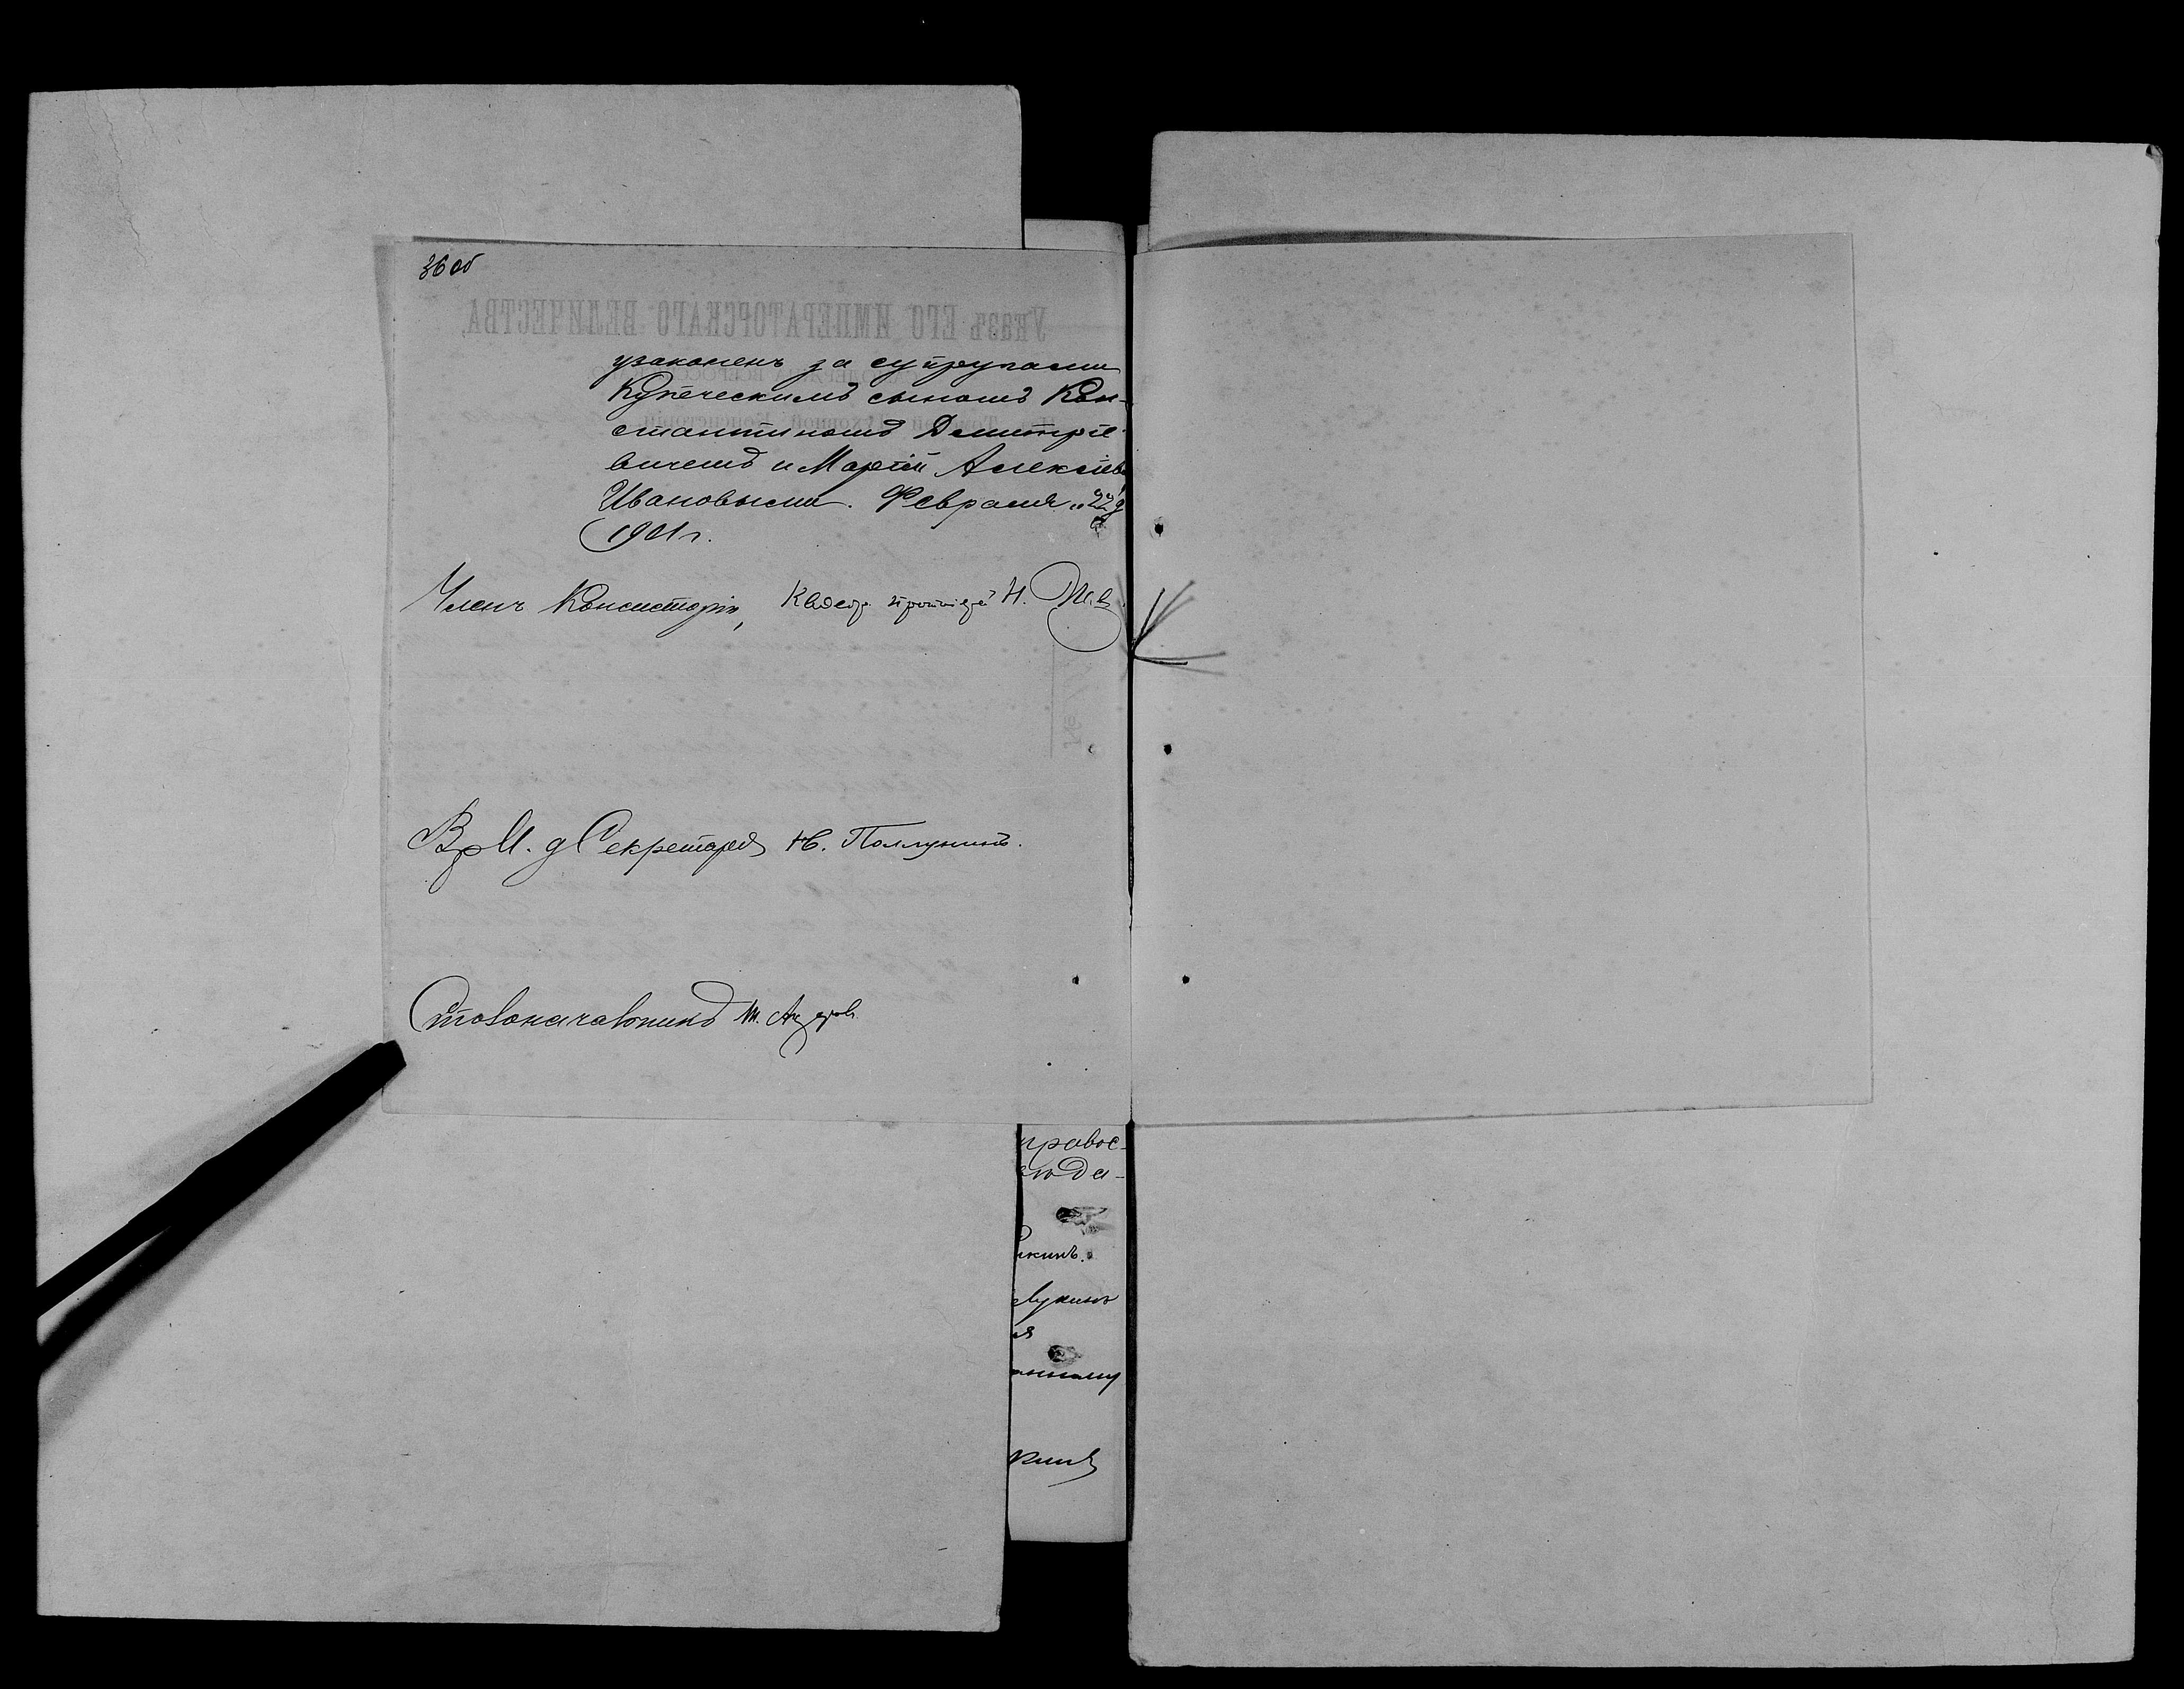 36 об
узаконенъ за супругами
Купеческимъ сыномъ Кон-
стантиномъ Дмитріе-
вичемъ и Маріей Алексѣев
Ивановыми. Февраля „22" д
1901 г.
Членъ Консисторіи, Каѳедр. протоіерей Н.
Вр. И. д Секретаря Н. Поллунинъ.
Столоначальникъ
правос-
люда-
кинъ.
Лукинъ
ся
анному
кинъ